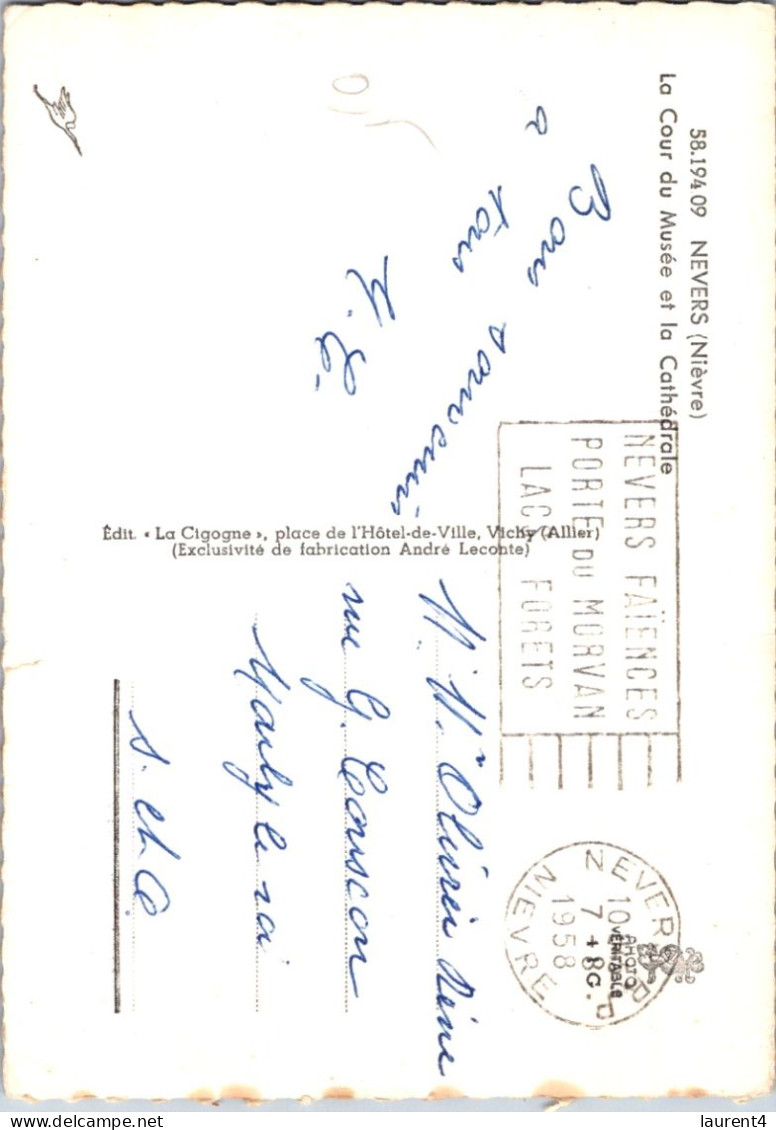 58.194 09 NEVERS (Nièvre)
La Cour du Musée et la Cathédrale
Bons souvenirs
a tous
Édit. « La Cigogne », place de l'Hôtel-de-Ville, Vichy (Allier)
(Exclusivité de fabrication André Leconte)
NEVERS FAÏENCES
PORTE DU MORVAN
LACS FORETS
NEVERS
10
7 - 8
1958
NIEVRE
PHOTO
VÉRITABLE
Olivier Réné
rue G.
Marly le roi
S. et O
laurent4